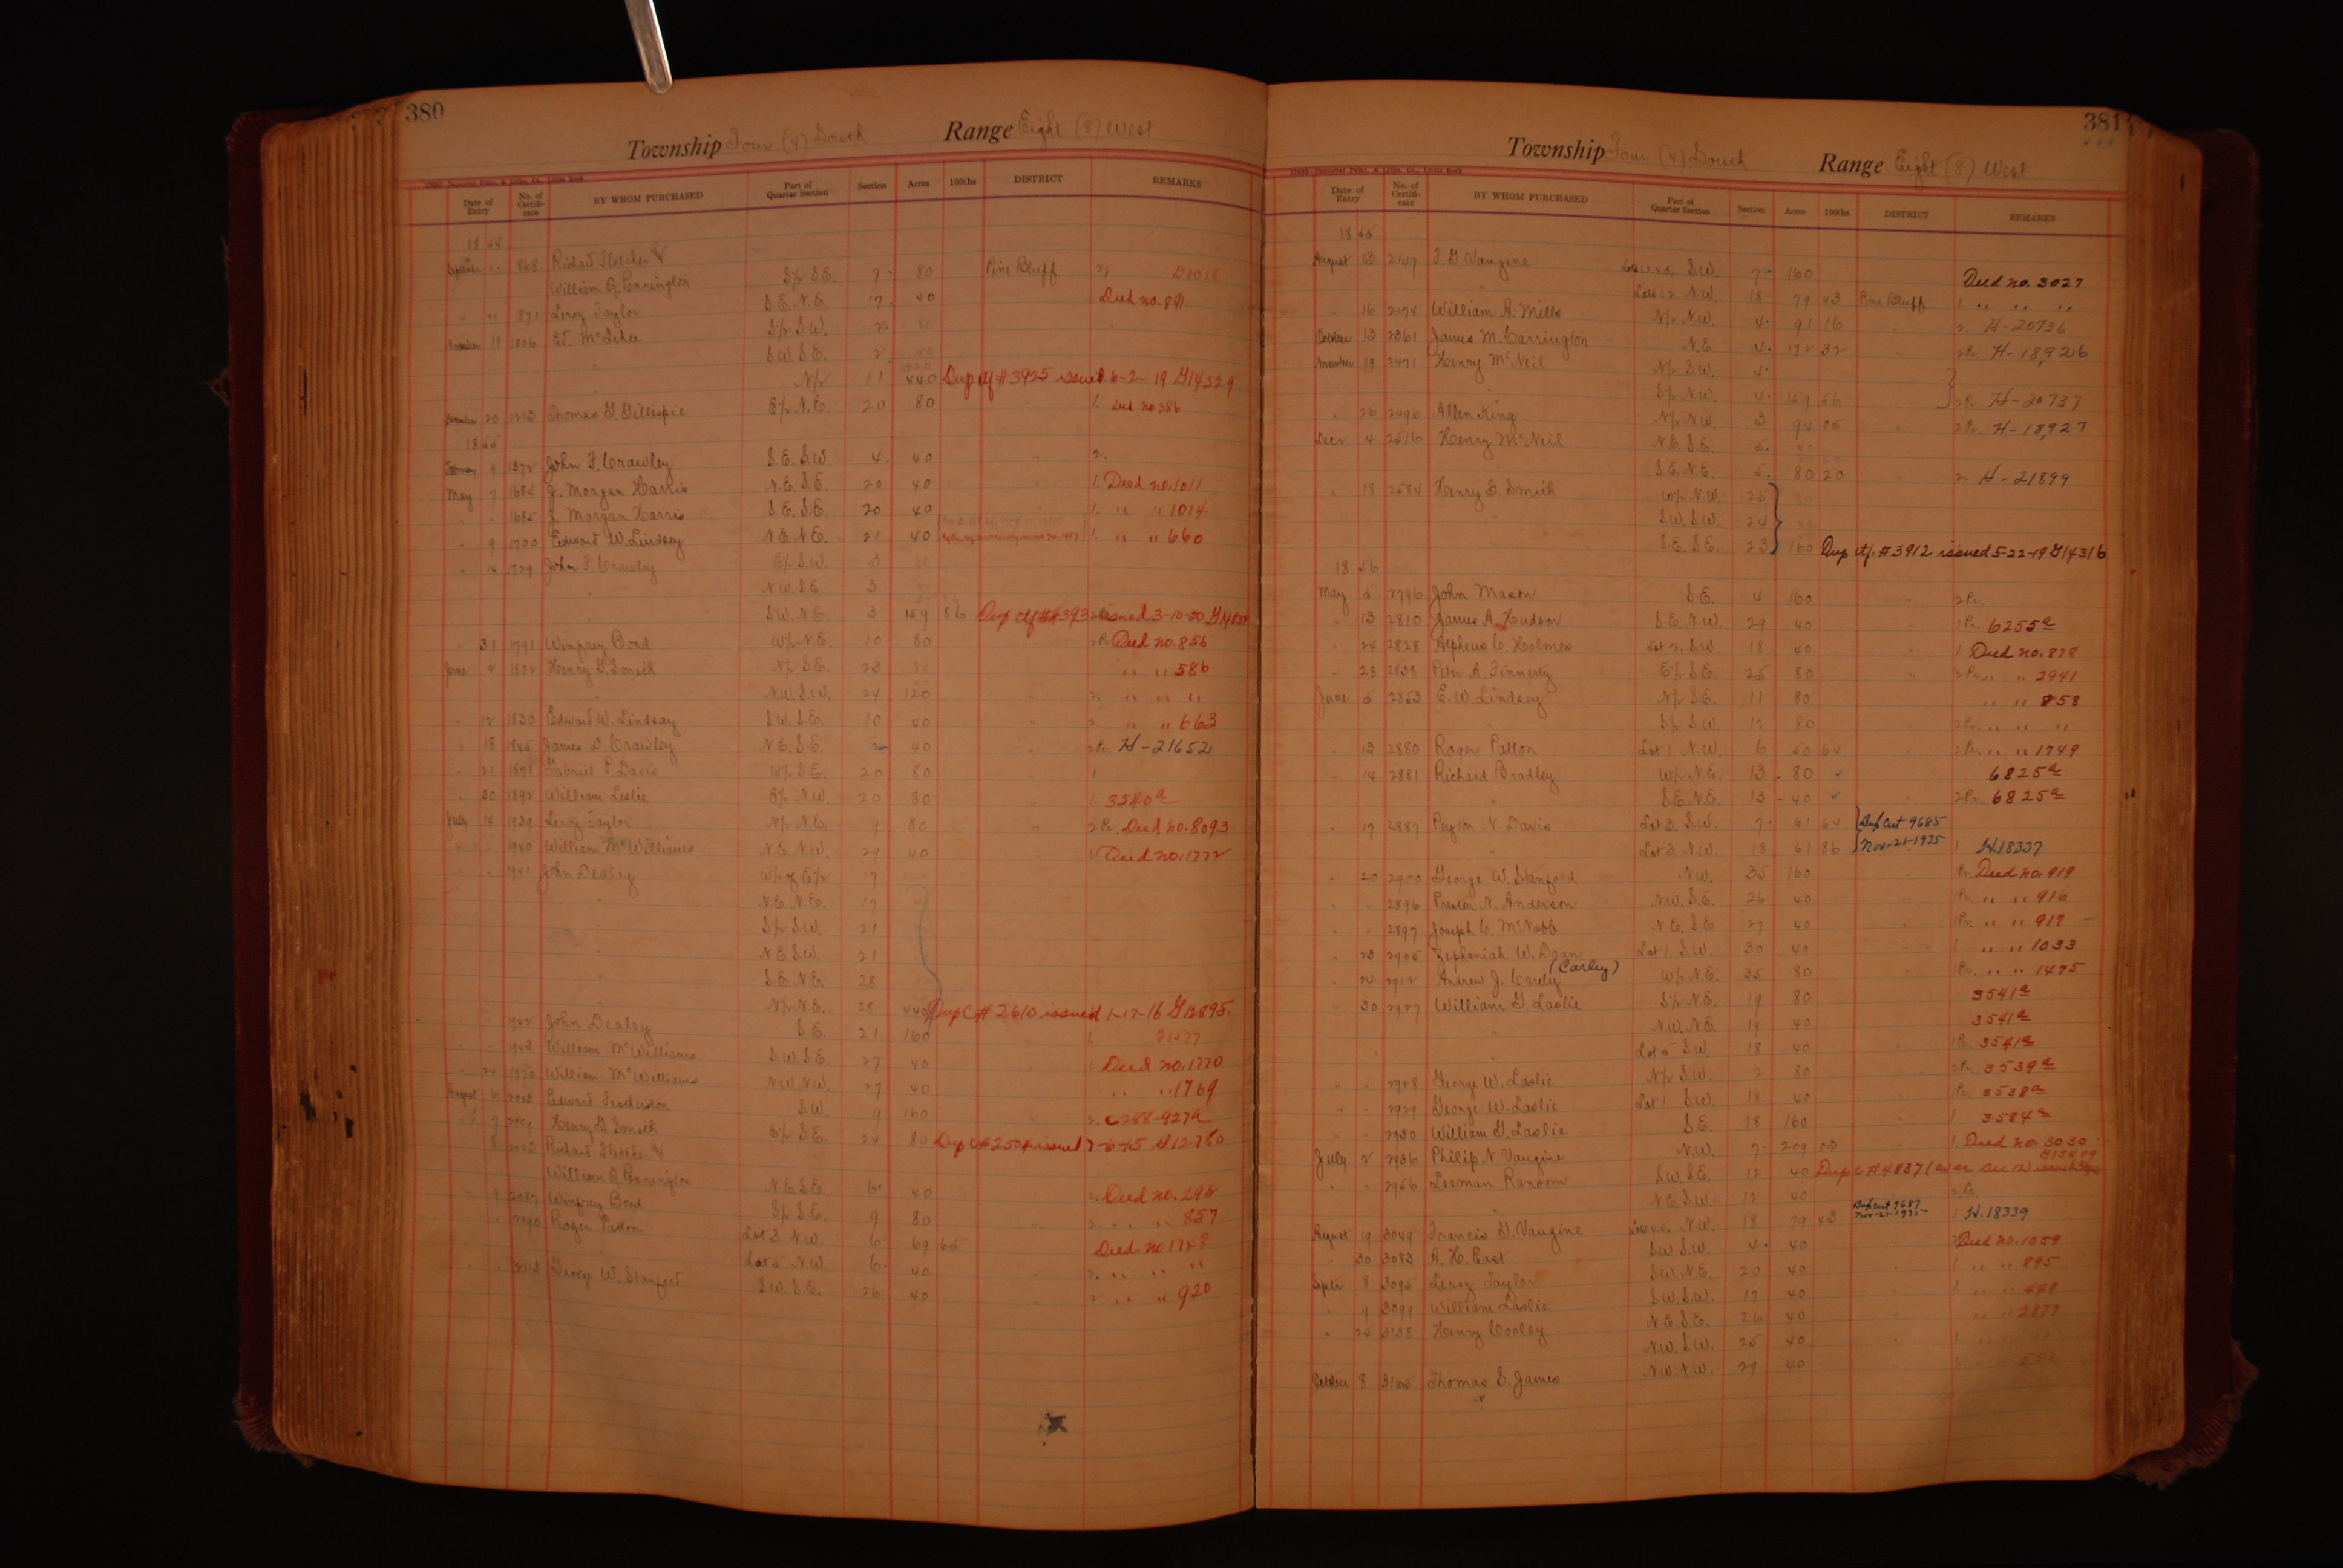 380
Township Four (4) South Range Eight (8) West
Date of Entry No. of Certificate BY WHOM PURCHASED Part of Quarter Section Section Acres 100ths DISTRICT REMARKS
1854
868 Richard Fletcher &
William R. Pennington S/2 S.E. 7 80 Pine Bluff 2 D1018
" 21 871 Leroy Taylor S.E. N.E. 17 40 Deed no. 891
11 1006 Ed. McGehee S/2 S.W. 2 80
" S.W. S.E. 2
" N/2 11 440 Dup ctf # 3925 issued 6-2-19 G14329
20 1213 Thomas G. Gillespie E/2 N.E. 20 80 1. Deed no 386
1855
9 1372 John F. Crawley S.E. S.W. 4 40 2.
May 7 1684 J. Morgan Harris N.E. S.E. 20 40 1. Deed no. 1011
" " 1685 J. Morgan Harris S.E. S.E. 20 40 1. " " 1014
" 9 1700 Edward W. Lindsey N.E. N.E. 21 40 1. " " 660
" 1729 John F. Crawley E/2 S.W. 3 80
" N.W. S.E. 3
S.W. N.E. 3 159 86 Dup ctf # issued 3-10-20
" 31 1791 Winfrey Bond W/2 N.E. 10 80 2 Pr. Deed no. 856
June 2 1802 Henry G. Smith N/2 S.E. 23 80 " " 586
N.W. S.W. 24 120 2. " " "
" 12 1830 Edward W. Lindsay S.W. S.E. 10 40 2. " " 663
" 18 1845 James D. Crawley N.E. S.E. 2 40 2 Pr. H-21652
" 21 1851 Gabriel P. Davis W/2 S.E. 20 80 1
" 30 1892 William Leslie E/2 N.W. 20 80 1. 3540 a
July 14 1939 Leroy Taylor N/2 N.E. 9 80 2 Pr. Deed no. 8093
" " 1940 William McWilliams N.E. N.W. 29 40 1 Deed no. 1772
" " 1941 John Dealey W/2 of E/2 17
" N.E. N.E. 17
" S/2 S.W. 21
" N.E. S.W. 21
" S.E. N.E. 28
" N/2 N.E. 28 440 Dup C# 2610 issued 1-17-16 G12895.
" " 1942 John Dealey S.E. 21 160 1.
" " 1943 William McWilliams S.W. S.E. 27 40 1 Deed no. 1770
" 24 1970 William McWilliams N.W. N.W. 27 40 " " 1769
August 6 Edward Featherston S.W. 9 160 2. C288-927a
" 7 Henry G. Smith E/2 S.E. 24 80 Dup C# 2504 issued 7-6-15 G12780
" 8 2023 Richard Fletcher &
William R. Pennington N.E. S.E. 6 40 2. Deed no. 292
" 9 2087 Winfrey Bond S/2 S.E. 9 80 2. " " 857
" " 2090 Roger Patton Lot 3 N.W. 6 69 65 Deed no 1748
Lot 5 N.W. 6 40 2. " " "
" " 2113 George W. Stanford S.W. S.E. 26 40 2 " " 920
381
Township Four (4) South Range Eight (8) West
Date of Entry No. of Certificate BY WHOM PURCHASED Part of Quarter Section Section Acres 100ths DISTRICT REMARKS
1855
August 13 2147 F. G. Vaugine S.W. 7 160 Deed no. 3027
Lots 1.2. N.W. 18 79 43 Pine Bluff 1 " " " "
" 16 2174 William A. Mills N/2 N.W. 4 91 16 2. H-20736
October 13 2361 James M. Carrington N.E. 4 192 32 2 Pr. H-18,926
November 19 2471 Henry McNeil N/2 S.W. 4
S/2 N.W. 4 159 56 2 Pr. H-20737
" 26 2496 Allen King N/2 N.W. 3 94 05 2 Pr. H-18,927
Decr 4 2516 Henry McNeil N.E. S.E. 5
S.E. N.E. 5 80 20 2. H-21899
" 18 2584 Henry G. Smith W/2 N.W. 25
" S.W. S.W. 24
S.E. S.E. 23 160 Dup ctf. # 3912 issued 5-22-19 G14316
1856
May 5 2796 John Mason S.E. 4 160 2 Pr.
" 13 2810 James A. Hudson S.E. N.W. 29 40 1 Pr. 6255 a
" 24 2828 Alpheus C. Holmes Lot 2. S.W. 18 40 1 Deed no. 878
" 28 2838 Peter A. Finnerty E/2 S.E. 25 80 2 Pr. " " 2941
June 5 2853 E. W. Lindsey N/2 S.E. 11 80 " " 858
" S/2 S.W. 12 80 2 Pr. " " "
" 13 2880 Roger Patton Lot 1 N.W. 6 50 64 2 Pr. " " 1749
" 14 2881 Richard Bradley W/2 N.E. 13 - 80 ✓ 6825 a
" S.E. N.E. 13 - 40 ✓ 2 Pr. 6825 a
" 17 2887 Peyton N. Davis Lot 3. S.W. 7 61 64 Dup Cert 9685
" Lot 3. N.W. 18 61 86 Nov-21-1935 1 H.18337
" 20 2900 George W. Stanford N.W. 35 160 1 Pr. Deed no. 919
" " 2896 Preston N. Anderson N.W. S.E. 26 40 1 Pr. " " 916
" " 2897 Joseph C. McNabb N.E. S.E. 27 40 1 Pr. " " 917 -
" 23 2905 Zephaniah W. Doan Lot 1 S.W. 30 40 1 " " 1033
(Carley)
" 24 2912 Andrew J. Carely W/2 N.E. 35 80 1 Pr. " " 1475
" 30 2927 William G. Laslie S/2 N.E. 19 80 3541 a
" N.W. N.E. 19 40 3541 a
" Lot 5 S.W. 18 40 1 Pr. 3541 a
" " 2928 George W. Laslie N/2 S.W. 2 80 2 Pr. 3539 a
" " 2929 George W. Laslie Lot 1 S.W. 18 40 1 Pr. 3538 a
" " 2930 William G. Laslie S.E. 18 160 1 3584 a
July 2 2936 Philip N. Vaugine N.W. 7 209 03 1. Deed no. 3030
" " 2956 Leeman Ransom S.W. S.E. 12 40 Dup c # 4837
N.E. S.W. 12 40 2 Pr.
Dup Cert 9687
Nov-21-1935
August 19 3049 Francis G. Vaugine N.W. 18 79 43 1 H.18339
" 30 3083 A. H. East S.W. S.W. 4 40 2 Deed no. 1059
Septr 8 3095 Leroy Taylor S.W. N.E. 20 40 1 " " 895
" 9 3099 William Laslie S.W. S.W. 17 40 1 " "
" 25 3138 Henry Cooley N.E. S.E. 26 40 " " 2877
N.W. S.W. 25 40
October 8 3165 Thomas S. James N.W. N.W. 29 40